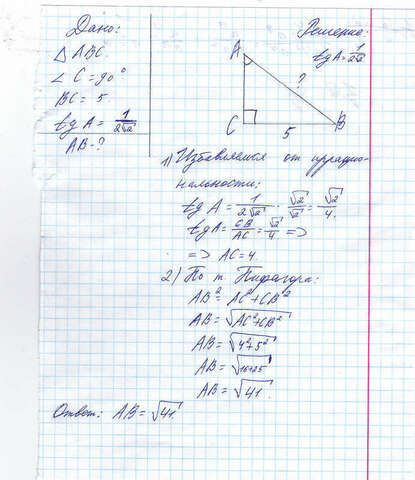 Дано:
△ ABC
∠ C = 90°
BC = 5
tg A = 1/(2√2)
AB - ?
Решение:
tg A = 1/(2√2)
A
?
C
5
B
1) Избавляемся от иррацио-
нальности:
tg A = 1/(2√2) · √2/√2 = √2/4.
tg A = CB/AC = √2/4 =>
=> AC = 4
2) По т Пифагора:
AB² = AC² + CB²
AB = √(AC² + CB²)
AB = √(4² + 5²)
AB = √(16 + 25)
AB = √41.
Ответ: AB = √41